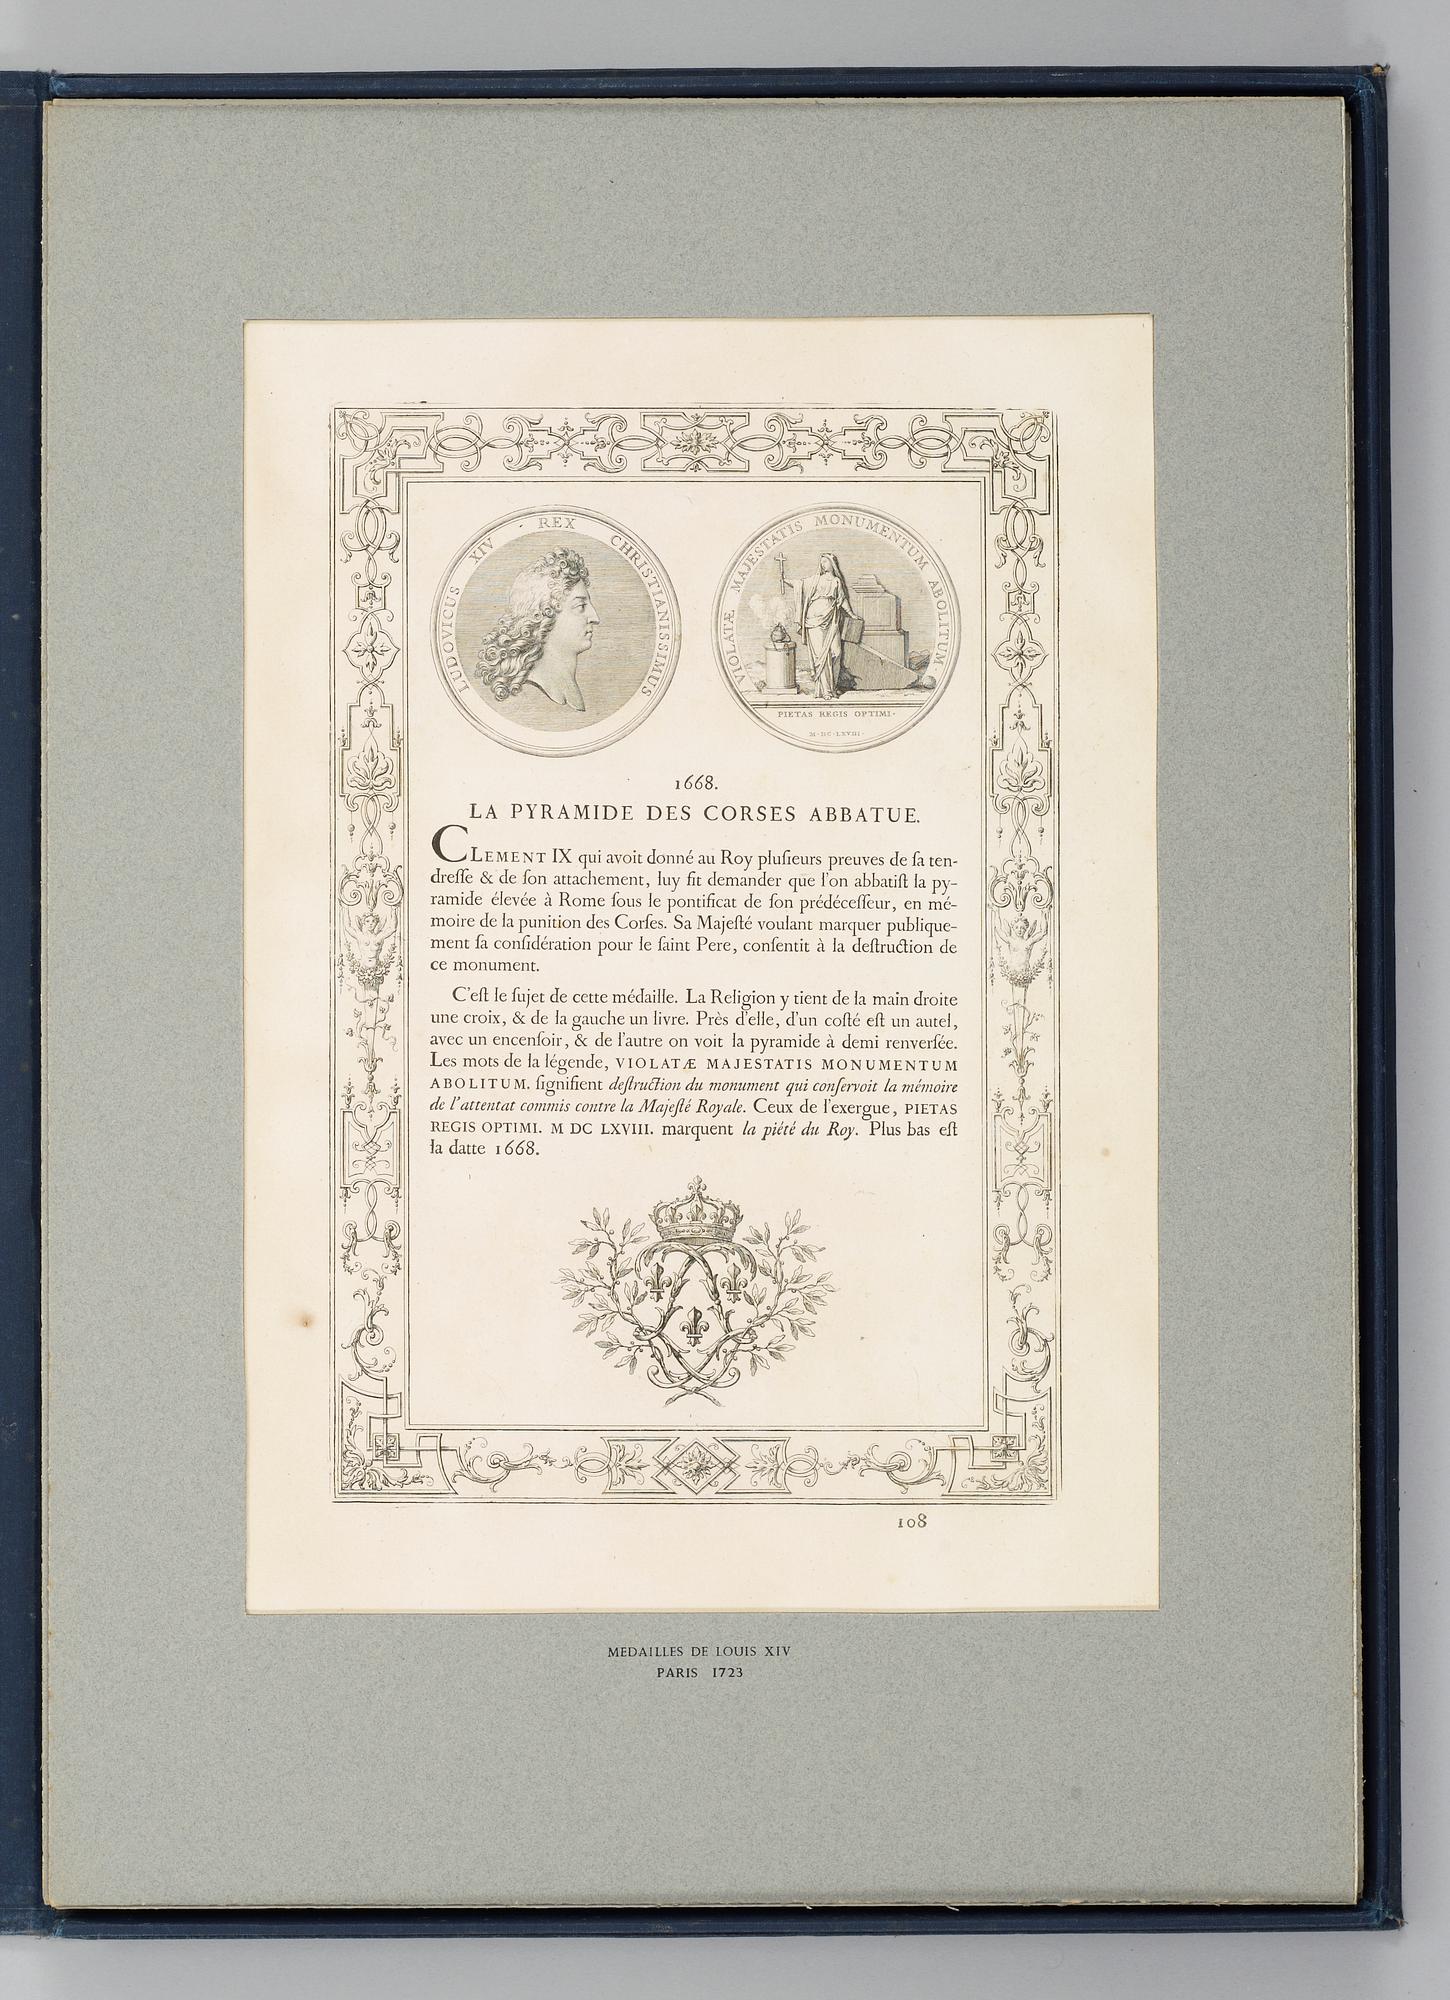 LUDOVICUS XIV REX CHRISTIANISSIMUS
VIOLATÆ MAJESTATIS MONUMENTUM ABOLITUM.
PIETAS REGIS OPTIMI·
M·DC·LXVIII·
1668.
LA PYRAMIDE DES CORSES ABBATUE.
CLEMENT IX qui avoit donné au Roy pluſieurs preuves de ſa ten-
dreſſe & de ſon attachement, luy fit demander que l'on abbatiſt la py-
ramide élevée à Rome ſous le pontificat de ſon prédéceſſeur, en mé-
moire de la punition des Corſes. Sa Majeſté voulant marquer publique-
ment ſa conſidération pour le ſaint Pere, conſentit à la deſtruction de
ce monument.
C'eſt le ſujet de cette médaille. La Religion y tient de la main droite
une croix, & de la gauche un livre. Près d'elle, d'un coſté eſt un autel,
avec un encenſoir, & de l'autre on voit la pyramide à demi renverſée.
Les mots de la légende, VIOLATÆ MAJESTATIS MONUMENTUM
ABOLITUM. ſignifient deſtruction du monument qui conſervoit la mémoire
de l'attentat commis contre la Majeſté Royale. Ceux de l'exergue, PIETAS
REGIS OPTIMI. M DC LXVIII. marquent la piété du Roy. Plus bas eſt
la datte 1668.
108
MEDAILLES DE LOUIS XIV
PARIS 1723